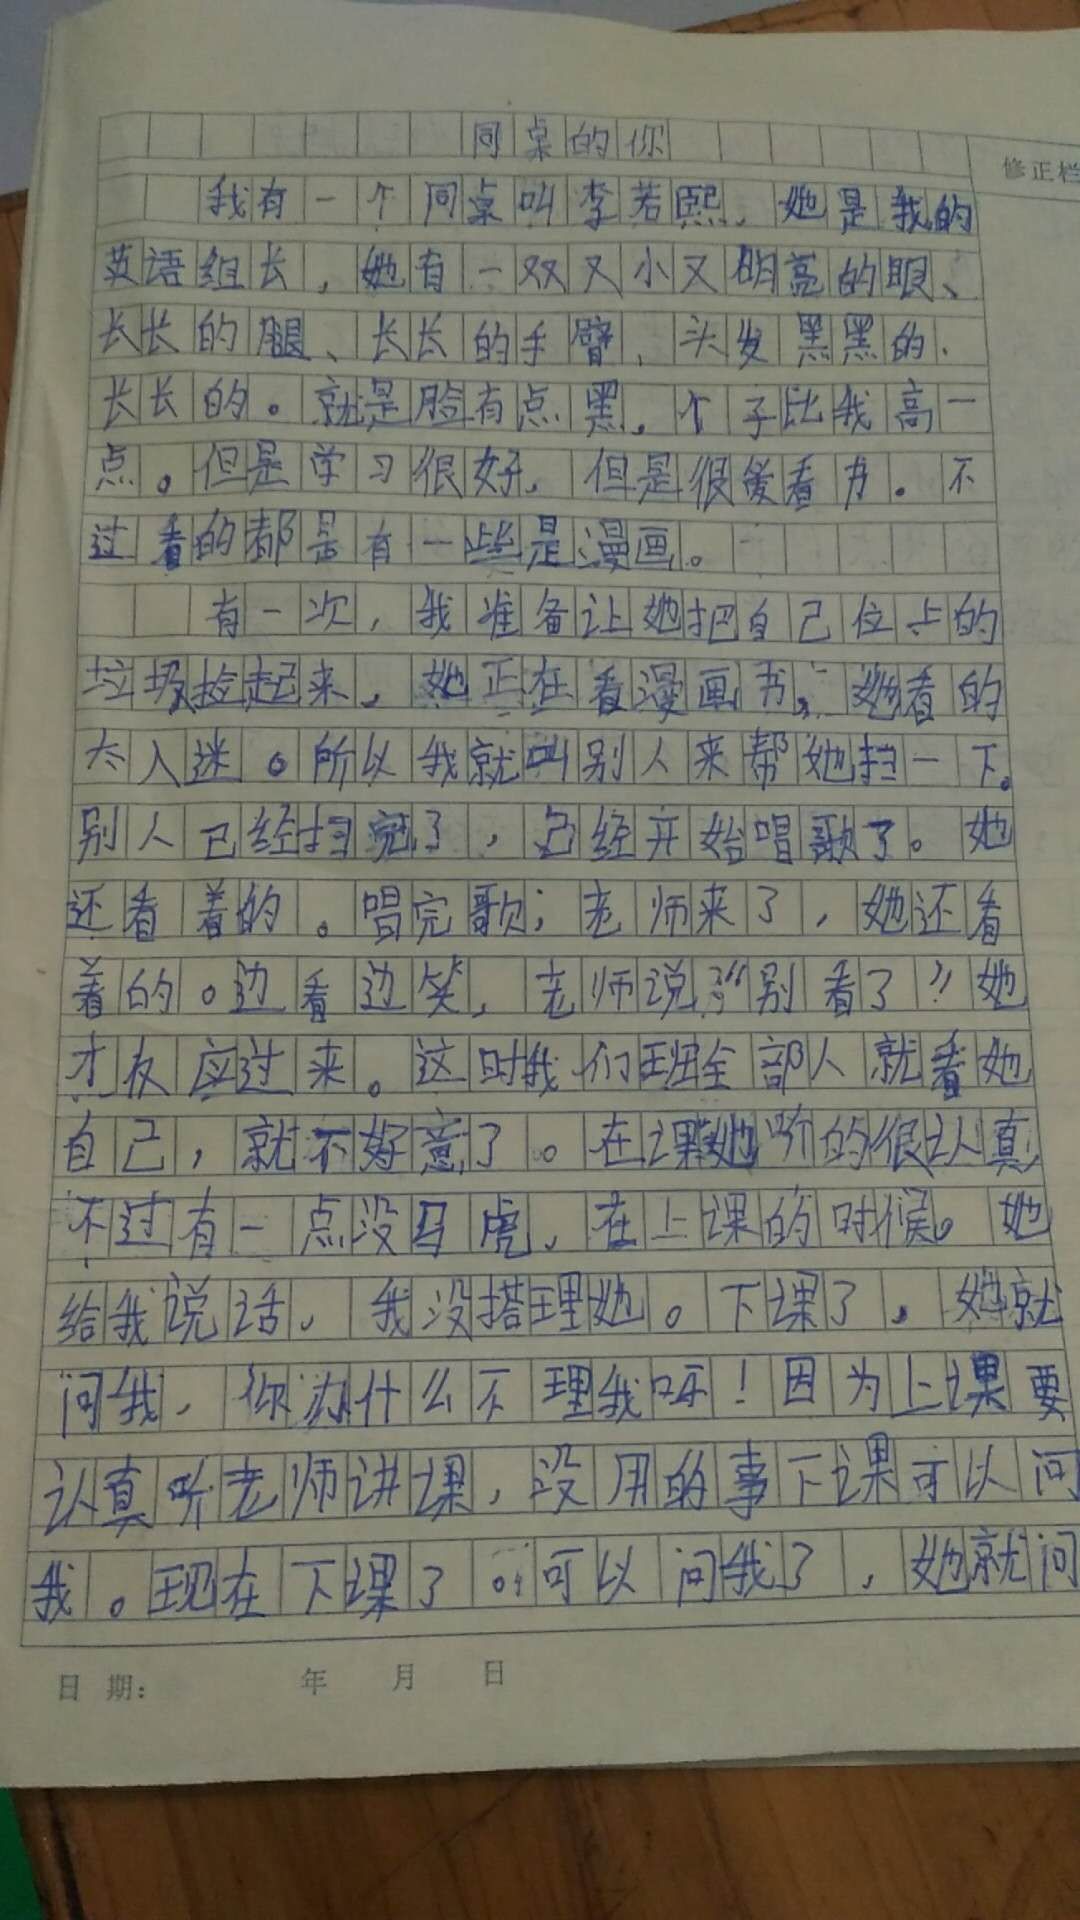 同桌的你
修正栏
我有一个同桌叫李若熙、她是我的
英语组长，她有一双又小又明亮的眼、
长长的腿、长长的手臂、头发黑黑的、
长长的。就是脸有点黑。个子比我高一
点。但是学习很好，但是很爱看书。不
过看的都是有一些是漫画。
有一次，我准备让她把自己位上的
垃圾捡起来，她正在看漫画书，她看的
太入迷。所以我就叫别人来帮她扫一下。
别人已经扫完了，已经开始唱歌了。她
还看着的。唱完歌；老师来了，她还看
着的。边看边笑，老师说："别看了"她
才反应过来。这时我们班全部人就看她
自己，就不好意了。在课她听的很认真
不过有一点没马虎、在上课的时候。她
给我说话，我没搭理她。下课了，她就
问我，你为什么不理我呀！因为上课要
认真听老师讲课，没用的事下课可以问
我。现在下课了。可以问我了，她就问
日期： 年 月 日